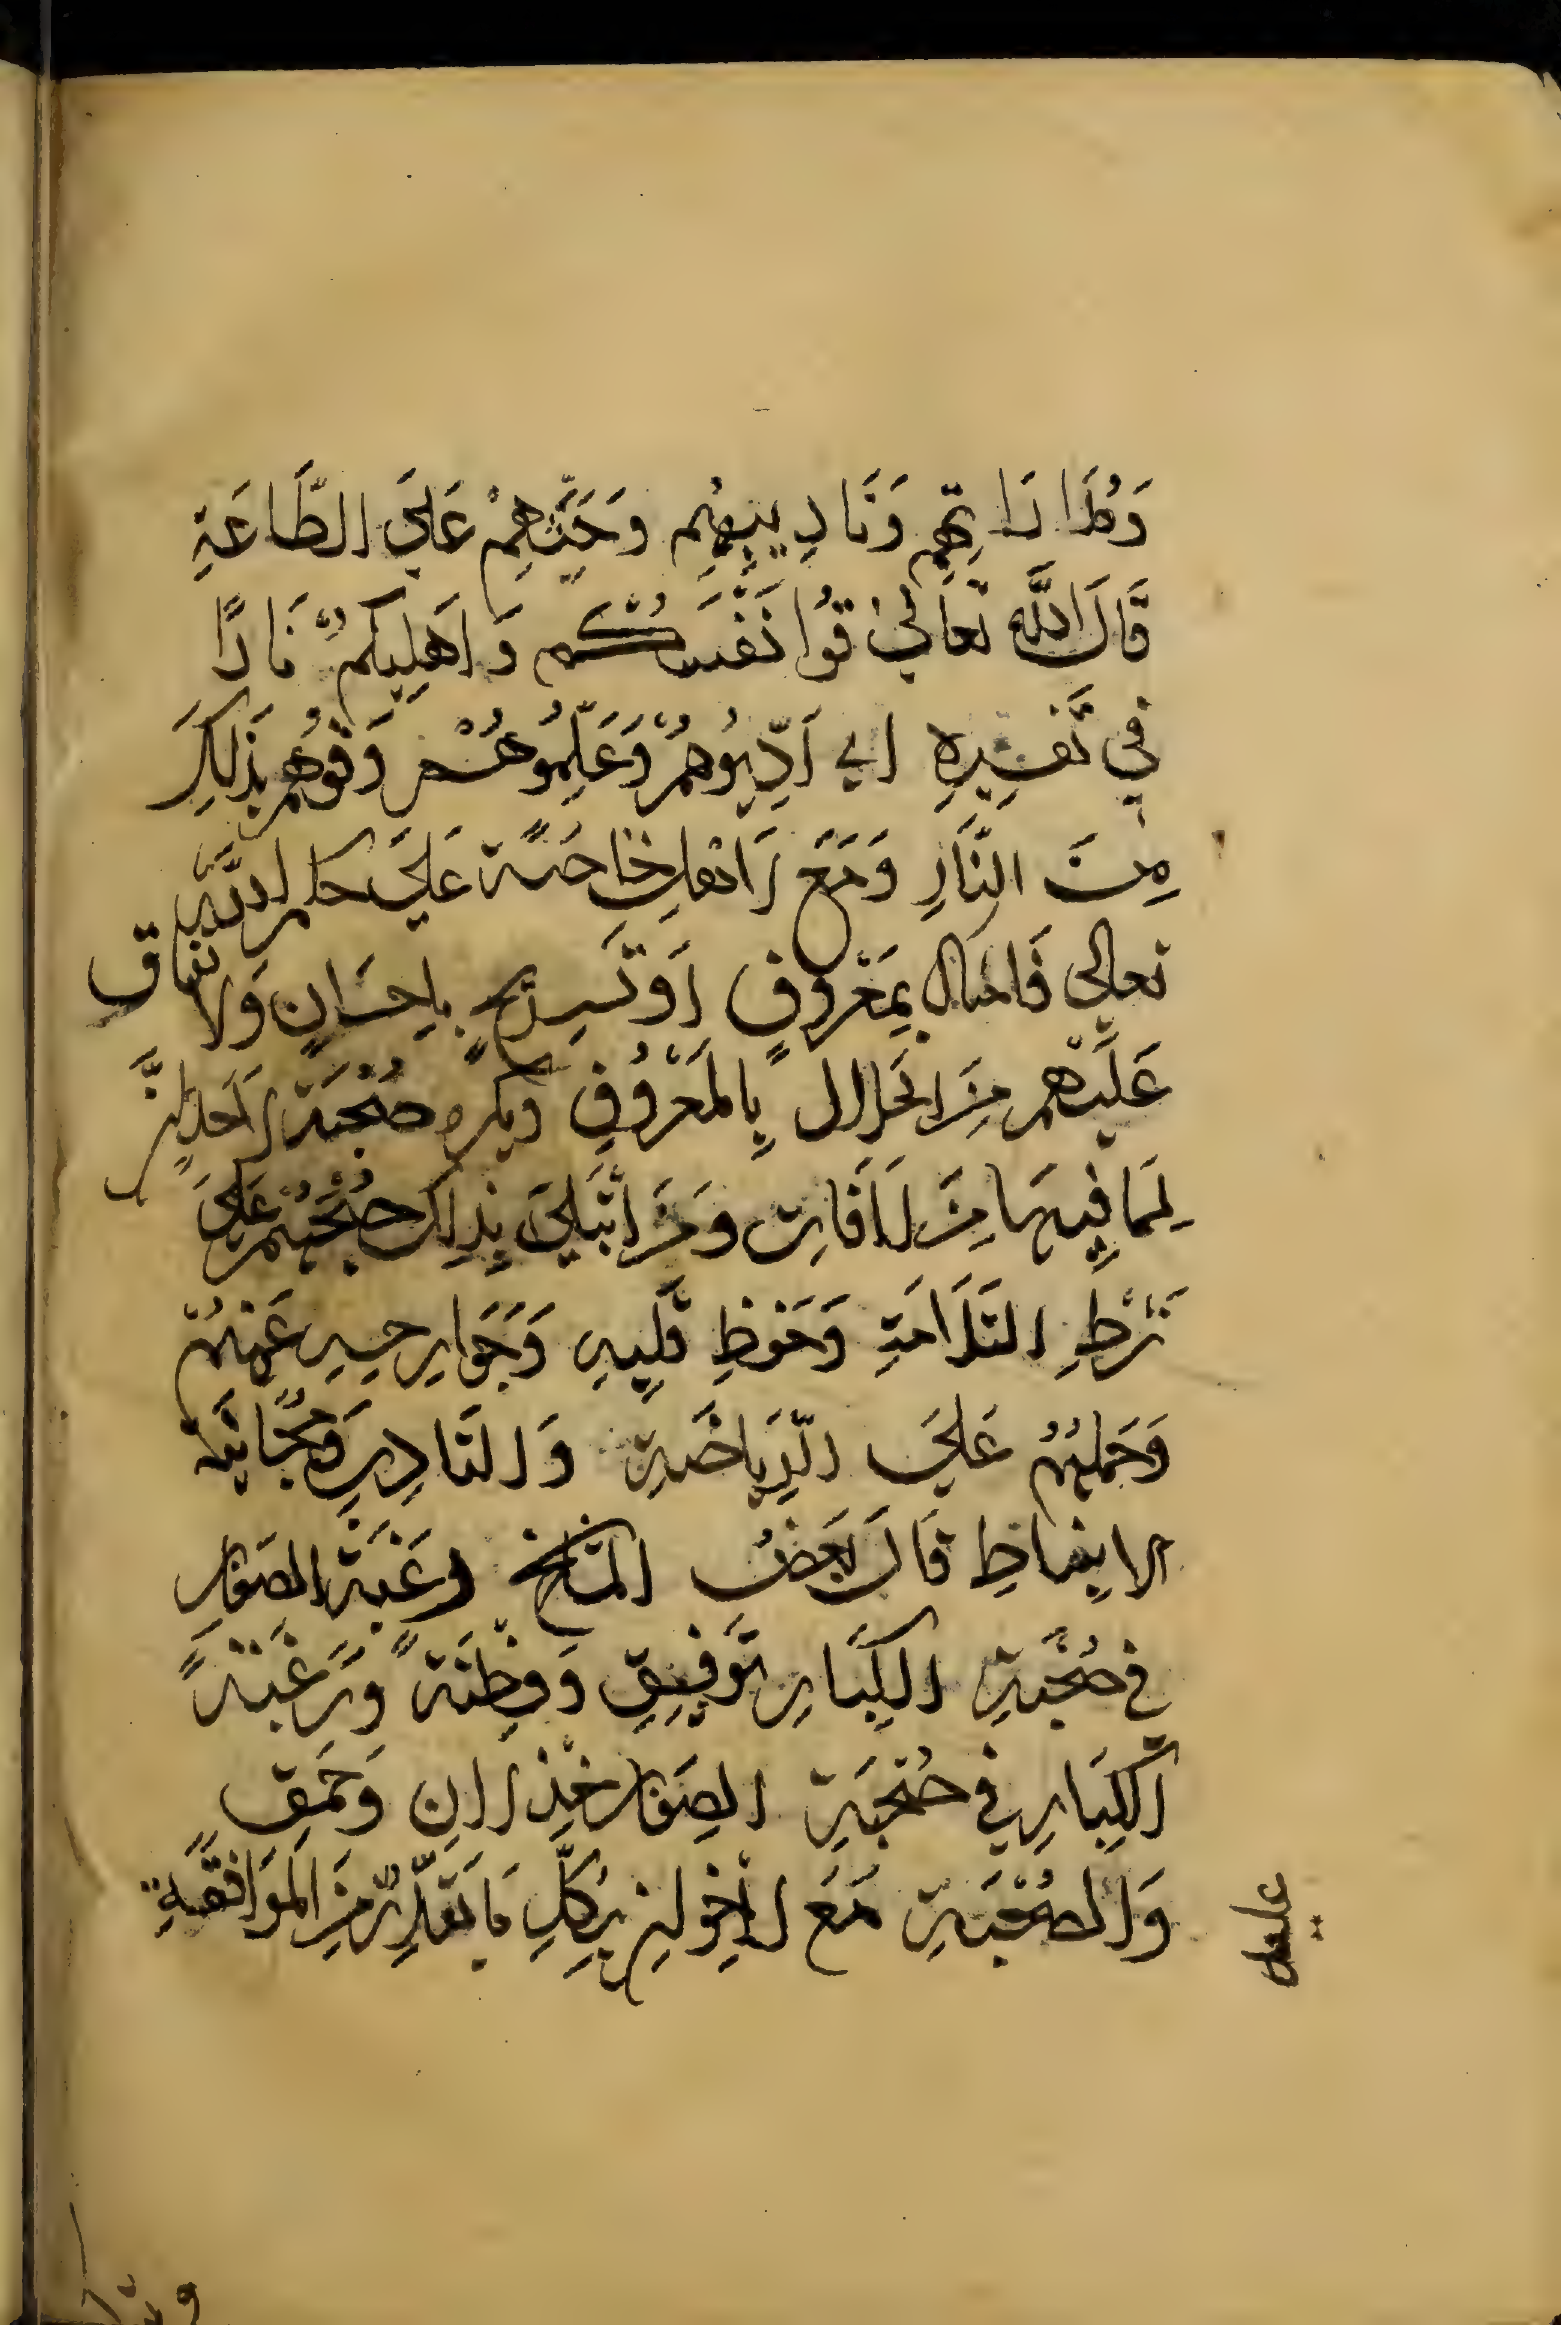 وَمُدَارَاتِهِم وَتَادِيبِهِم وَحَثِّهِمْ عَلَى الطَّاعَةِ
قَالَ اللَّه تَعَالَى قُوا نَفْسَكُم وَاَهلِيكُمْ نَارًا
في تَفسِيرِهِ اي اَدِّبُوهُمْ وَعَلِّمُوهُم وَقُوهُم بذَلِكَ
مِنَ النَّارِ وَمَعَ الاهلِ خاصَة عَلَى كلام اللَّهِ
تعالى فَامسَاك بِمَعْرُوفٍ اَو تَسرِيحٍ بِاِحسَانٍ وَالانفاق
عَلَيهم مِنَ الحَلال بِالمَعْرُوفِ ويكره صُحْبَة الاَحداثِ
لِمَا فِيهَا مِنَ الاَفَاتِ وَمَنِ ابْتَلَى بِذلِك صُحبَتهم عَلَى
شَرْطِ السَّلَامَةِ وَحَفظِ قَلبِهِ وَجَوَارِحِهِ عَنهُمْ
وَحَملهُم عَلَى الرِّيَاضَةِ وَالتَادِيبِ وَمُجَانَبَة
الانبساطِ قَالَ بَعضُ المشَايخ رغبَة الصغَار
في صُحْبَةِ الكِبَارِ تَوفِيق وَفِطنَة وَرَغْبَة
الكِبَارِ في صُحْبَةِ الصِغَار خِذلان وَحُمق
وَالصُحْبَةِ مَعَ الاخوان بِكلِّ مَا يَقدِرُ مِنَ المُوَافَقَةِ
عليه